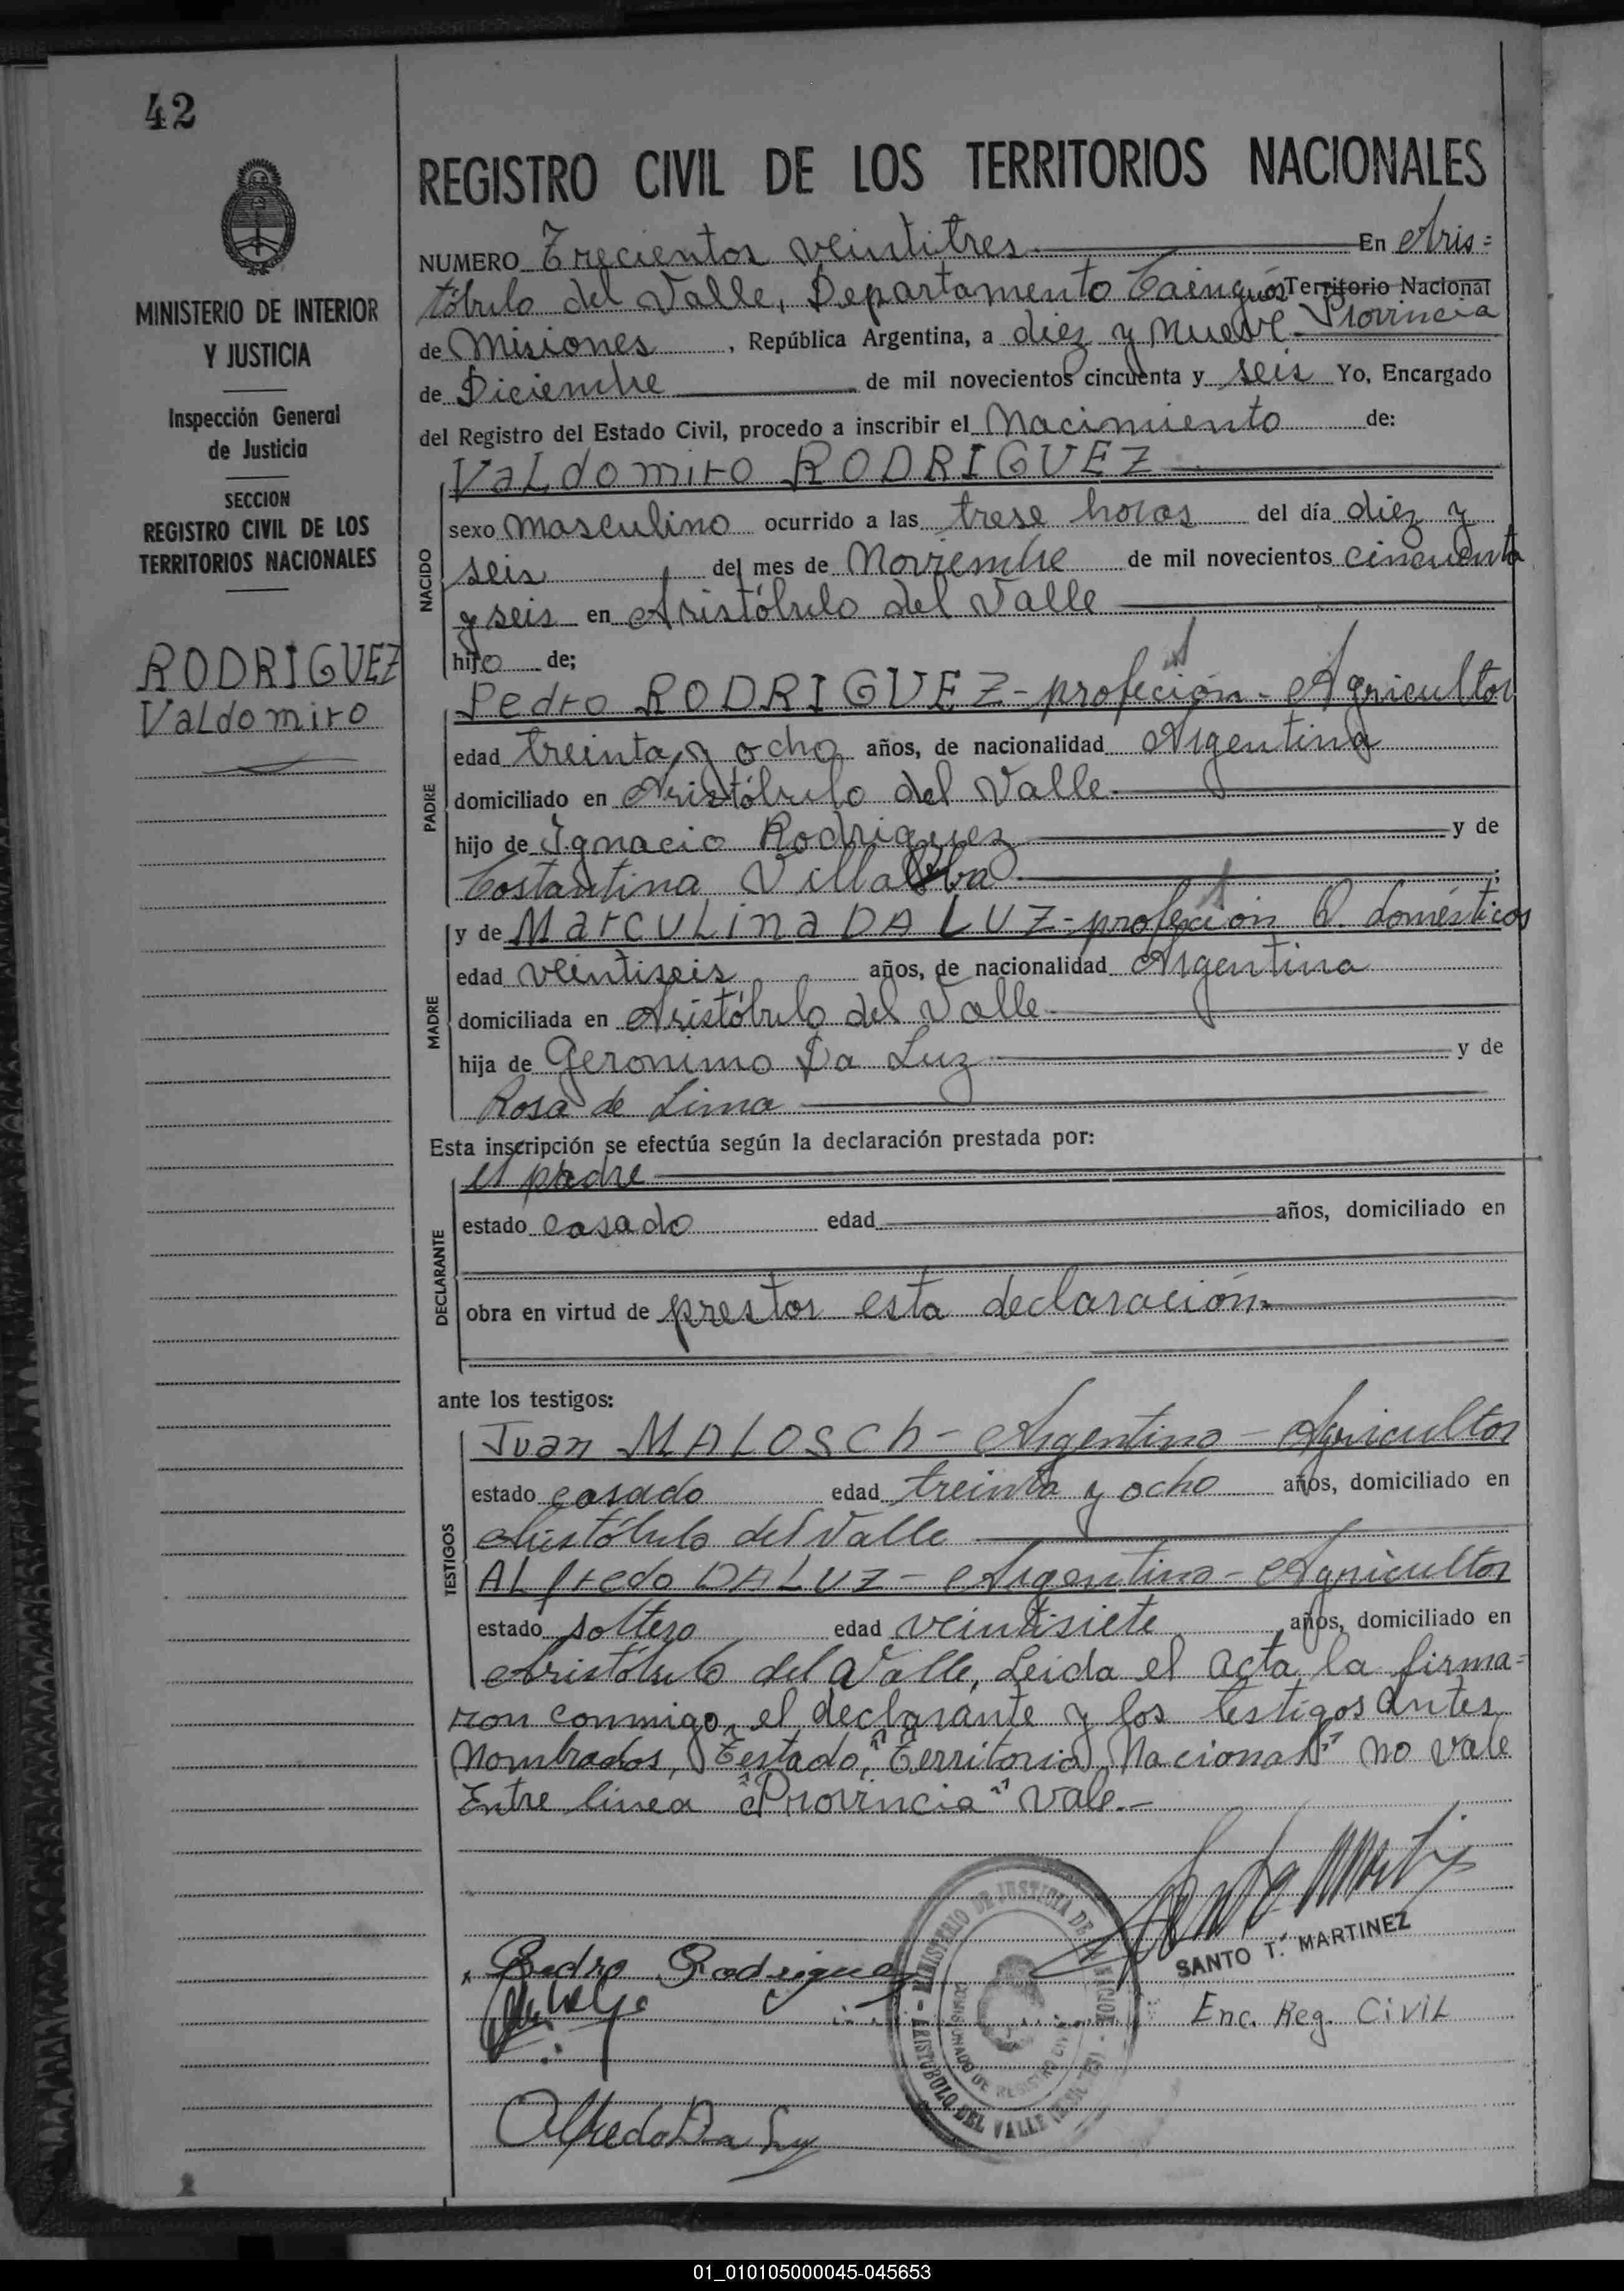 42
MINISTERIO DE INTERIOR
Y JUSTICIA
Inspección General
de Justicia
SECCION
REGISTRO CIVIL DE LOS
TERRITORIOS NACIONALES
RODRIGUEZ
Valdomiro
REGISTRO CIVIL DE LOS TERRITORIOS NACIONALES
NUMERO Trecientos veintitres En Aris=
tóbulo del Valle, Departamento Cainguás Territorio Nacional
Provincia
de Misiones, República Argentina, a diez y nueve
de Diciembre de mil novecientos cincuenta y seis Yo, Encargado
del Registro del Estado Civil, procedo a inscribir el Nacimiento de:
NACIDO
Valdomiro RODRIGUEZ
sexo masculino ocurrido a las trese horas del día diez y
seis del mes de Noviembre de mil novecientos cincuenta
y seis en Aristóbulo del Valle
hijo de;
PADRE
Pedro RODRIGUEZ - profeción - Agricultor
edad treinta y ocho años, de nacionalidad Argentina
domiciliado en Aristóbulo del Valle
hijo de Ignacio Rodriguez y de
Costantina Villalba ;
MADRE
y de Marculina DA LUZ - profeción Q. domésticos
edad veintiseis años, de nacionalidad Argentina
domiciliada en Aristóbulo del Valle
hija de Geronimo Da Luz y de
Rosa de Lima
Esta inscripción se efectúa según la declaración prestada por:
DECLARANTE
el padre
estado casado edad años, domiciliado en
obra en virtud de prestar esta declaración
ante los testigos:
TESTIGOS
Juan MALOSCh - Argentino - Agricultor
estado casado edad treinta y ocho años, domiciliado en
Aristóbulo del Valle
ALfredo DA LUZ - Argentino - Agricultor
estado soltero edad veintisiete años, domiciliado en
Aristóbulo del Valle, Leida el acta la firma=
ron conmigo, el declarante y los testigos antes
nombrados, Testado, "Territorio Nacional" no vale
Entre linea "Provincia" vale.-
SANTO T. MARTINEZ
Enc. Reg. CiviL
Pedro Rodriguez
MINISTERIO DE JUSTICIA DE LA NACION - ARISTOBULO DEL VALLE
Alfredo Da Luz
01_010105000045-045653